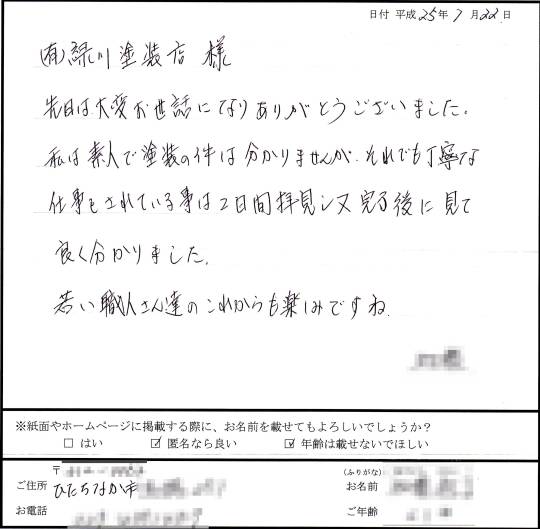 日付 平成 25年 7月 22日
(有)緑川塗装店 様
先日は大変お世話になりありがとうございました。
私は素人で塗装の件は分かりませんが、それでも丁寧な
仕事をされている事は2日間拝見し又完了後に見て
良く分かりました。
若い職人さん達のこれからも楽しみですね。
※紙面やホームページに掲載する際に、お名前を載せてもよろしいでしょうか？
□ はい ☑ 匿名なら良い ☑ 年齢は載せないでほしい
〒
ご住所 ひたちなか市
お電話
(ふりがな)
お名前
ご年齢